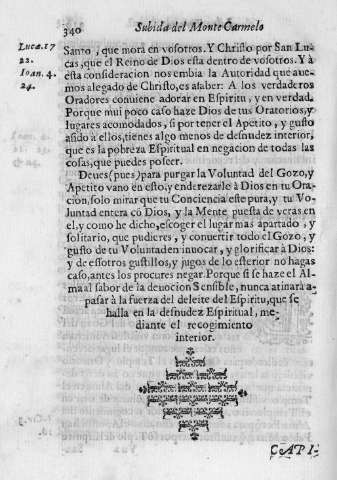 340
Subida del Monte Carmelo
Lucæ. 17
22.
Ioan. 4.
24.
Santo, que mora en vosotros. Y Christo por San Lu-
cas, que el Reino de Dios esta dentro de vosotros. Y à
esta consideracion nos embia la Autoridad que aue-
mos alegado de Christo, es asaber: A los verdaderos
Oradores conuiene adorar en Espiritu, y en verdad.
Porque mui poco caso haze Dios de tus Oratorios, y
lugares acomodados, si por tener el Apetito, y gusto
asido à ellos, tienes algo menos de desnudez interior,
que es la pobreza Espiritual en negacion de todas las
cosas, que puedes poseer.
Deues (pues) para purgar la Voluntad del Gozo, y
Apetito vano en esto, y enderezarle à Dios en tu Ora-
cion, solo mirar que tu Conciencia este pura, y tu Vo-
luntad entera cō Dios, y la Mente puesta de veras en
el, y como he dicho, escoger el lugar mas apartado, y
solitario, que pudieres, y conuertir todo el Gozo, y
gusto de tu Voluntad en inuocar, y glorificar à Dios:
y de essotros gustillos, y jugos de lo esterior no hagas
caso, antes los procures negar. Porque si se haze el Al-
ma al sabor de la deuocion Sensible, nunca atinarà a
pasar à la fuerza del deleite del Espiritu, que se
halla en la desnudez Espiritual, me-
diante el recogimiento
interior.
CAPI-